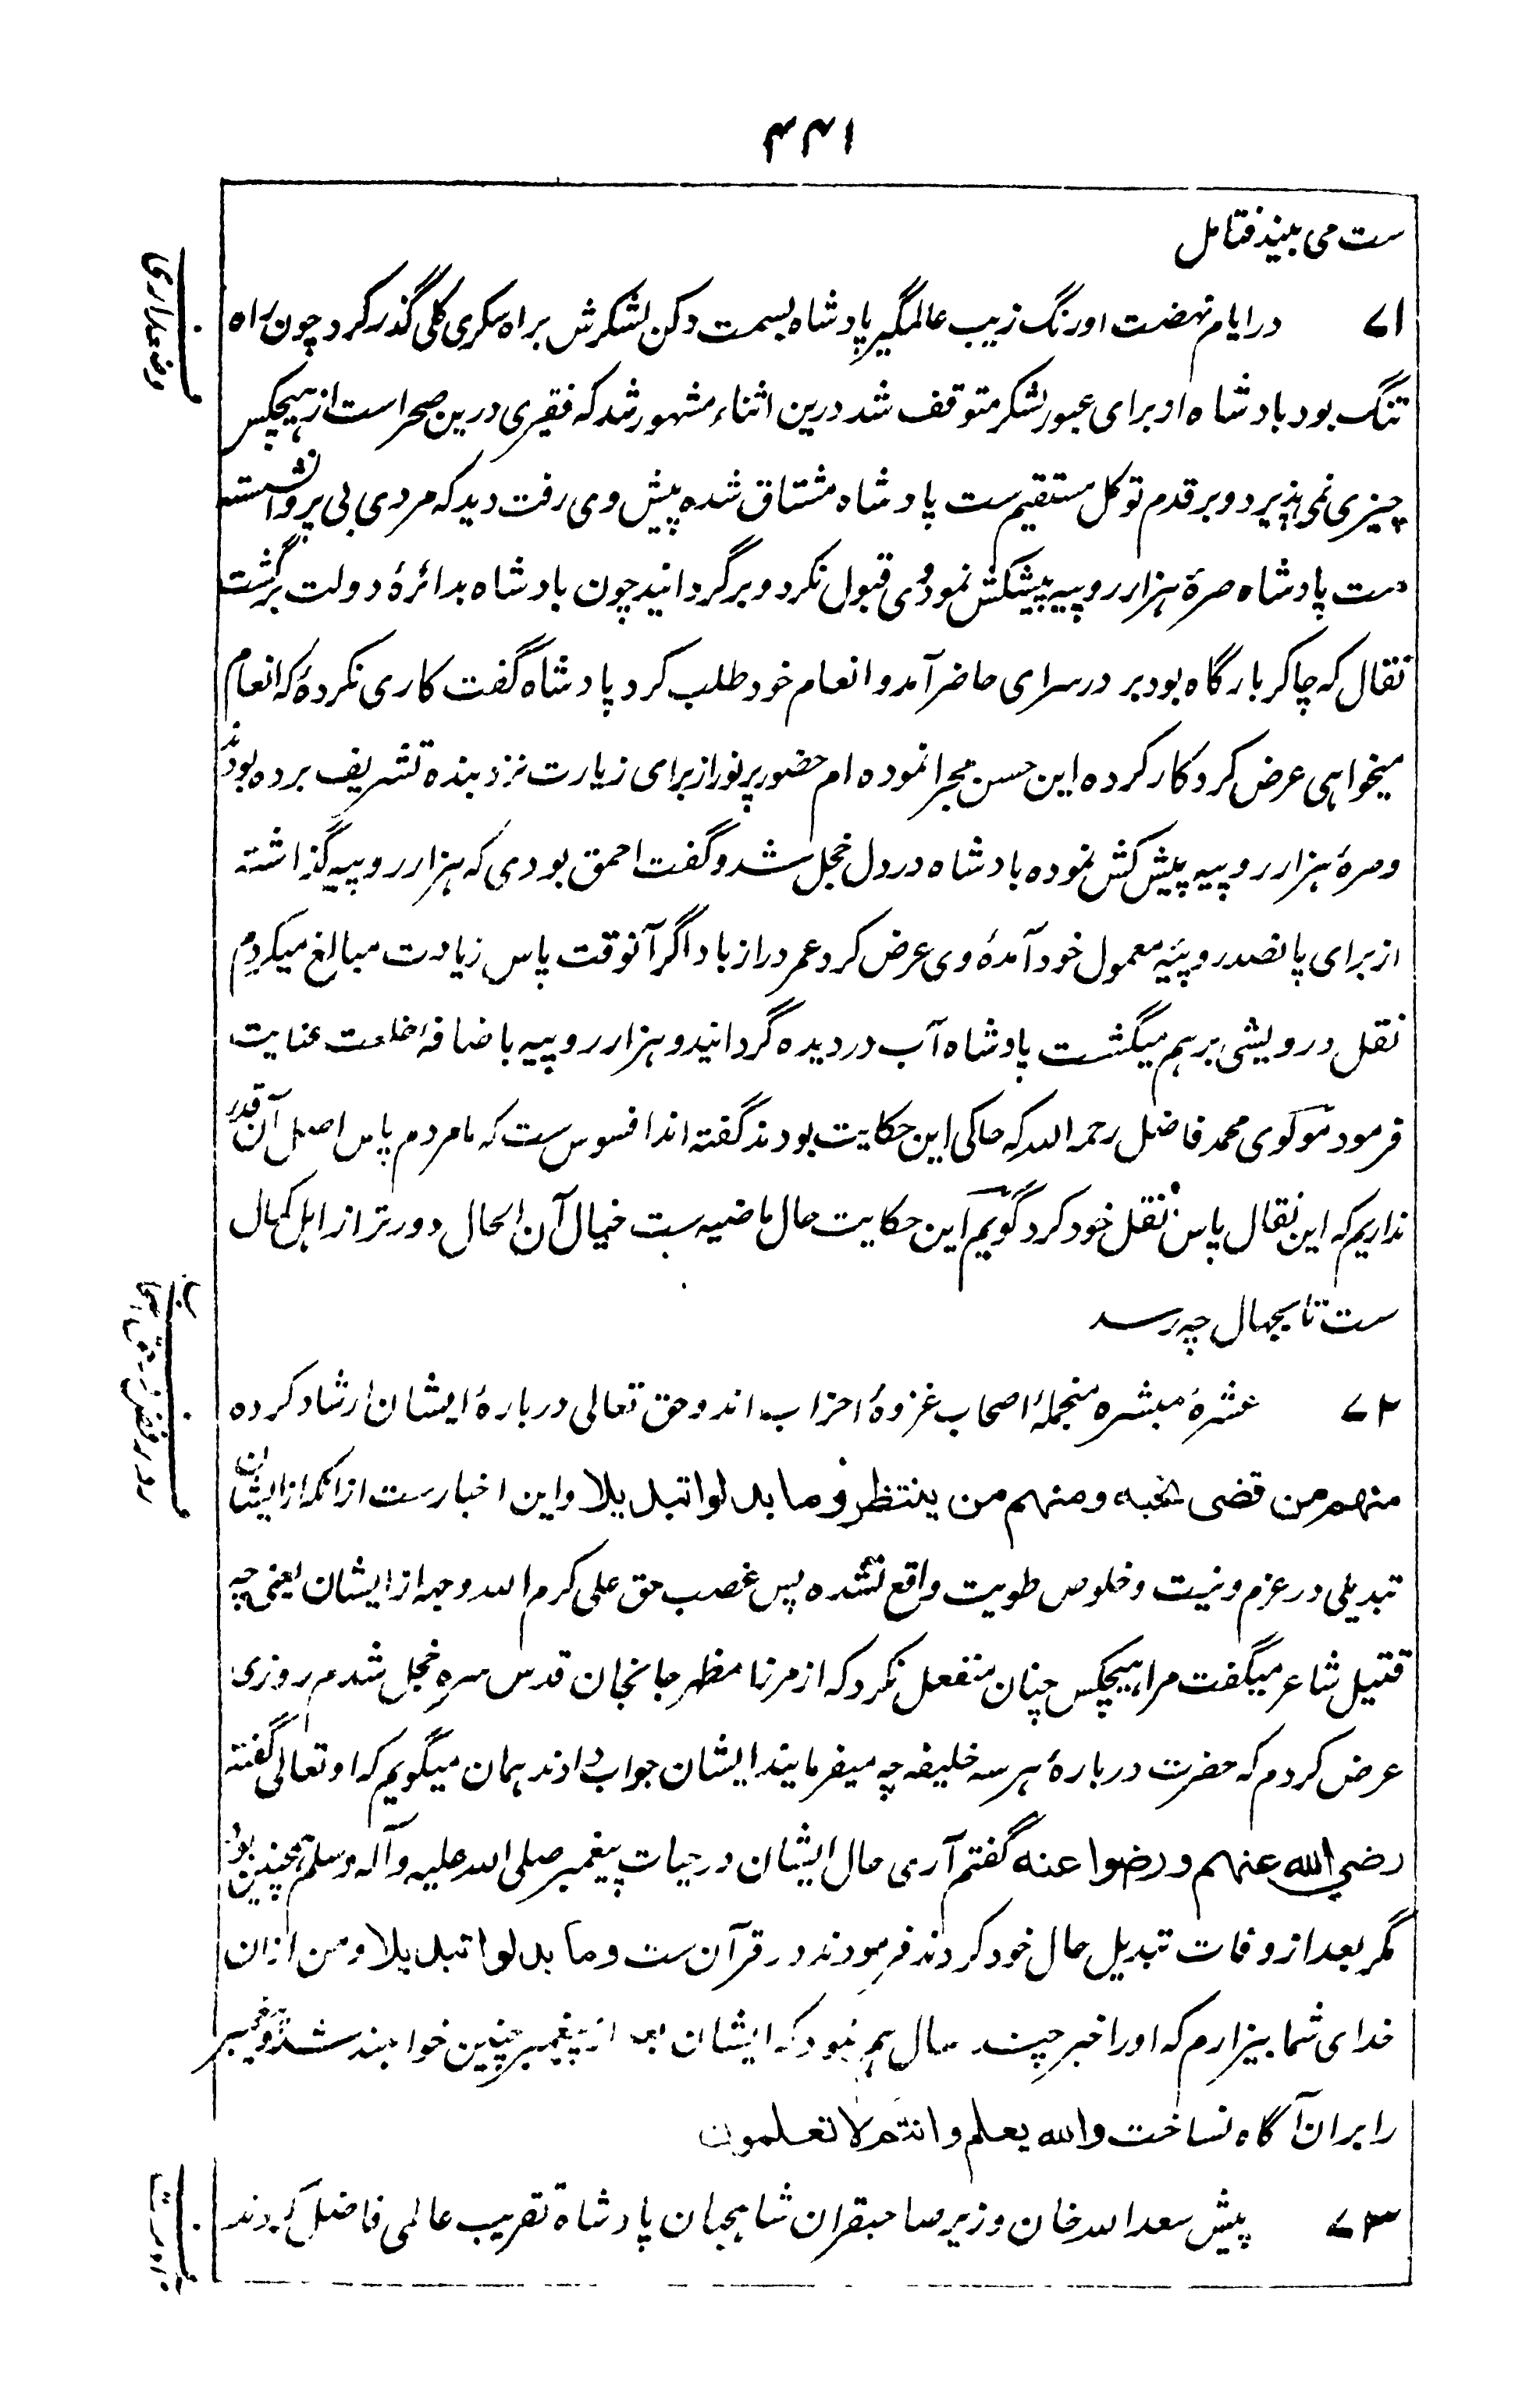 ۴۴۱
ست می بیند فتامل
۷۱ در ایام نهضت اورنگ زیب عالمگیر پادشاه بسمت دکن لشکرش براه سکری گلی گذر کرد چون راه
تنگ بود بادشاه از برای عبور لشکر متوقف شد درین اثناء مشهور شد که فقیری درین صحراست از هیچکس
چیزی نمی پذیرد و بر قدم توکل مستقیم ست پادشاه مشتاق شده پیش وی رفت دید که مردی بی پروا نشسته
ست پادشاه صرهٔ هزار روپیه پیشکش نمود وی قبول نکرد و برگردانید چون بادشاه بدائرهٔ دولت برگشت
نقال که چاکر بارگاه بود بر در سرای حاضر آمد و انعام خود طلب کرد پادشاه گفت کاری نکردهٔ که انعام
میخواهی عرض کرد کار کرده این حسن مجرا نموده ام حضور پرنور از برای زیارت نزد بنده تشریف برده بودند
وصرهٔ هزار روپیه پیش کش نموده بادشاه در دل خجل شد و گفت احمق بودی که هزار روپیه گذاشته
از برای پانصد روپیه معمول خود آمدهٔ وی عرض کرد عمر دراز باد اگر آنوقت پاس زیادت مبالغ میکردم
نقل درویشی برهم میگشت پادشاه آب در دیده گردانید و هزار روپیه باضافهٔ خلعت عنایت
فرمود مولوی محمد فاضل رحمه الله که حاکی این حکایت بودند گفته اند افسوس ست که ما مردم پاس اصل آن قدر
نداریم که این نقال پاس نقل خود کرد گویم این حکایت حال ماضیه ست خیال آن الحال دورتر از اهل کمال
ست تا بجهال چه رسد
۷۲ عشرهٔ مبشره منجملهٔ اصحاب غزوهٔ احزاب اند و حق تعالی دربارهٔ ایشان ارشاد کرده
منهم من قضی نحبه ومنهم من ینتظر وما بدلوا تبدیلا و این اخبارست از آنکه از ایشان
تبدیلی در عزم و نیت و خلوص طویت واقع نشده پس غصب حق علی کرم الله وجهه از ایشان یعنی چه
قتیل شاعر میگفت مرا هیچکس چنان منفعل نکرد که از مرزا مظهر جانجانان قدس سره خجل شدم روزی
عرض کردم که حضرت دربارهٔ هر سه خلیفه چه میفرمایند ایشان جواب دادند همان میگویم که او تعالی گفته
رضی الله عنهم ورضوا عنه گفتم آری حال ایشان در حیات پیغمبر صلی الله علیه و آله وسلم همچنین بود
مگر بعد از وفات تبدیل حال خود کردند فرمودند در قرآن ست وما بدلوا تبدیلا ومن ازان
خدای شما بیزارم که او را خبر چند سال هم نبود که ایشان بعد از پیغمبر چنین خواهند شد و پیغمبر
را بران آگاه نساخت والله یعلم وانتم لا تعلمون
۷۳ پیش سعد الله خان وزیر صاحبقران شاهجهان پادشاه تقریب عالمی فاضل کردند